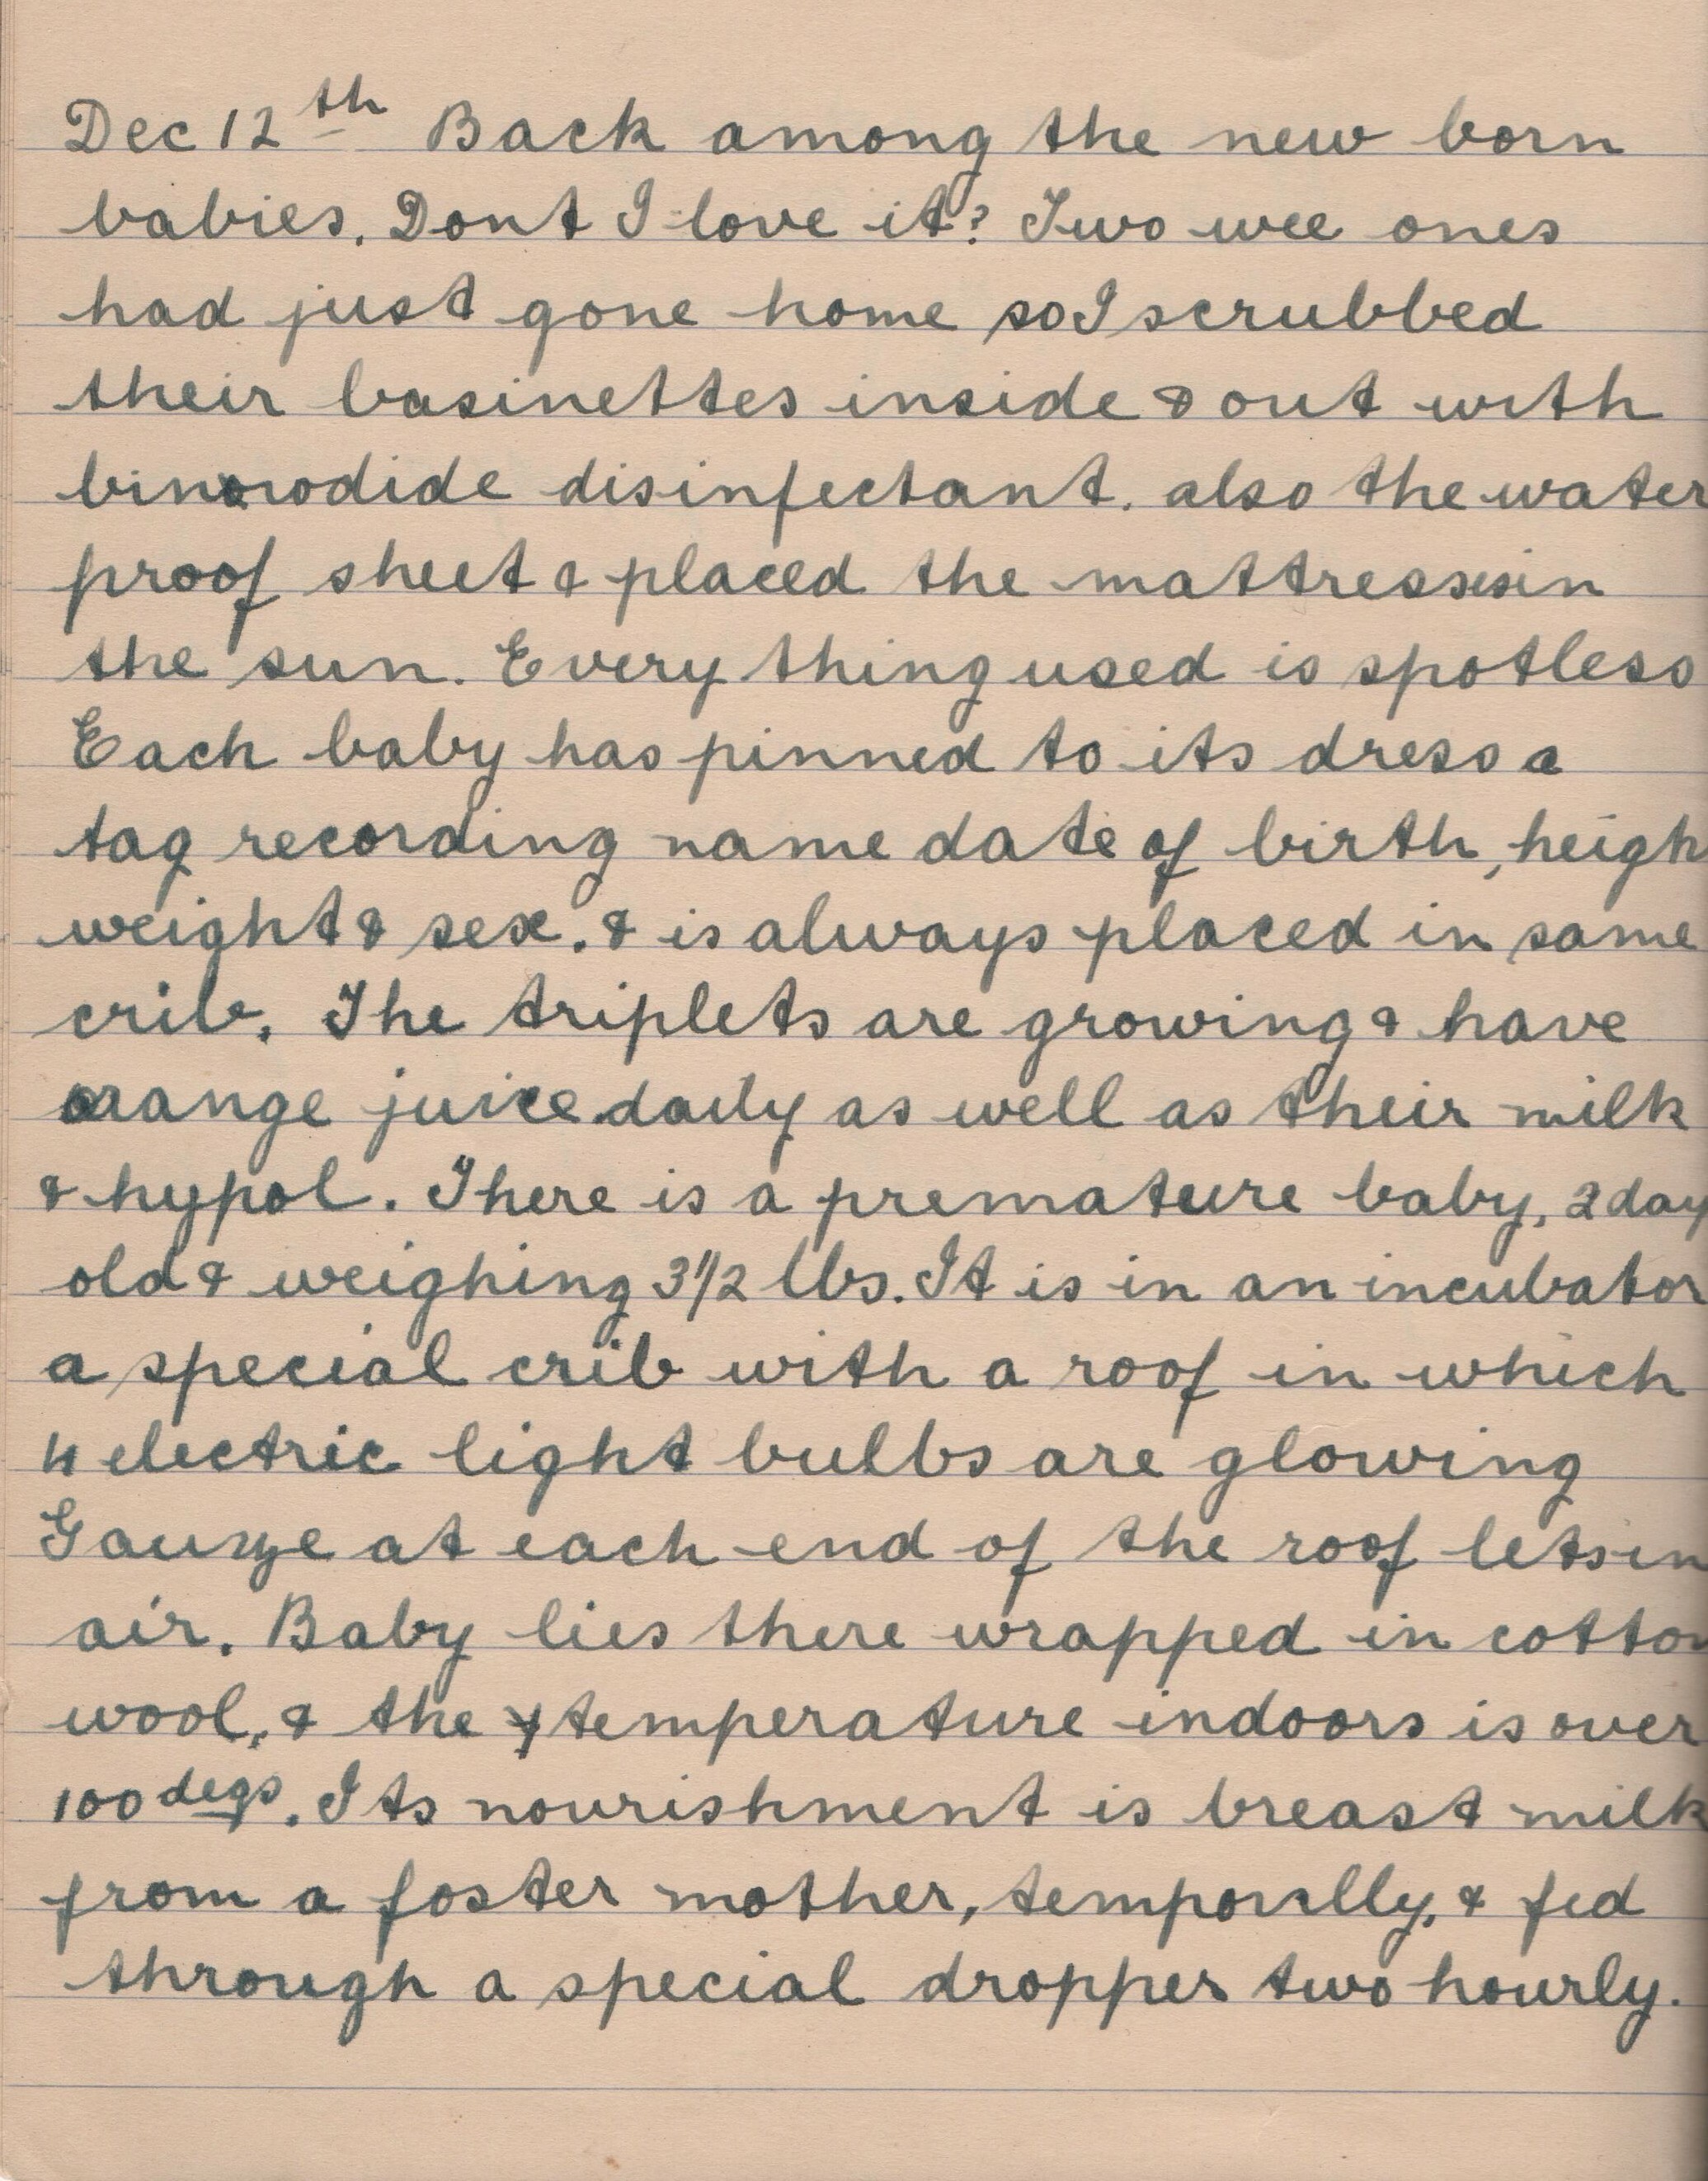 Dec 12th Back among the new born
babies. Dont I love it? Two wee ones
had just gone home so I scrubbed
their basinettes inside & out with
biniodide disinfectant. also the water
proof sheet & placed the mattresses in
the sun. Every thing used is spotless
Each baby has pinned to its dress a
tag recording name date of birth, heigh
weight & sex. & is always placed in same
crib. The triplets are growing & have
orange juice daily as well as their milk
& hypol. There is a premature baby, 2 day
old & weighing 3 1/2 lbs. It is in an incubator
a special crib with a roof in which
4 electric light bulbs are glowing
Gauze at each end of the roof lets in
air. Baby lies there wrapped in cotton
wool, & the temperature indoors is over
100 degs. Its nourishment is breast milk
from a foster mother, temporally, & fed
through a special dropper two hourly.